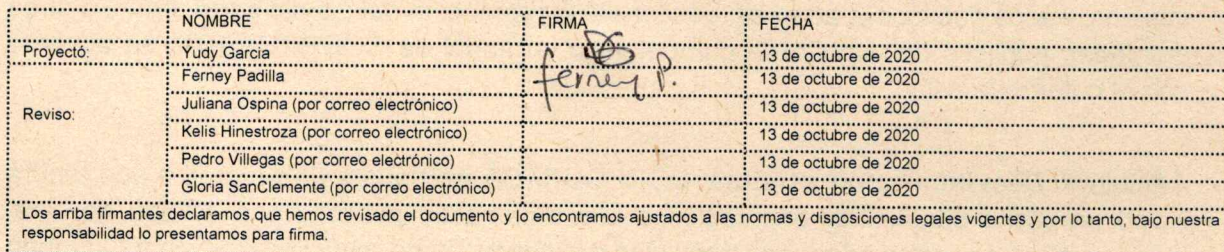 NOMBRE FIRMA FECHA
Proyectó: Yudy Garcia 13 de octubre de 2020
Ferney Padilla ferney P. 13 de octubre de 2020
Reviso: Juliana Ospina (por correo electrónico) 13 de octubre de 2020
Kelis Hinestroza (por correo electrónico) 13 de octubre de 2020
Pedro Villegas (por correo electrónico) 13 de octubre de 2020
Gloria SanClemente (por correo electrónico) 13 de octubre de 2020
Los arriba firmantes declaramos que hemos revisado el documento y lo encontramos ajustados a las normas y disposiciones legales vigentes y por lo tanto, bajo nuestra
responsabilidad lo presentamos para firma.